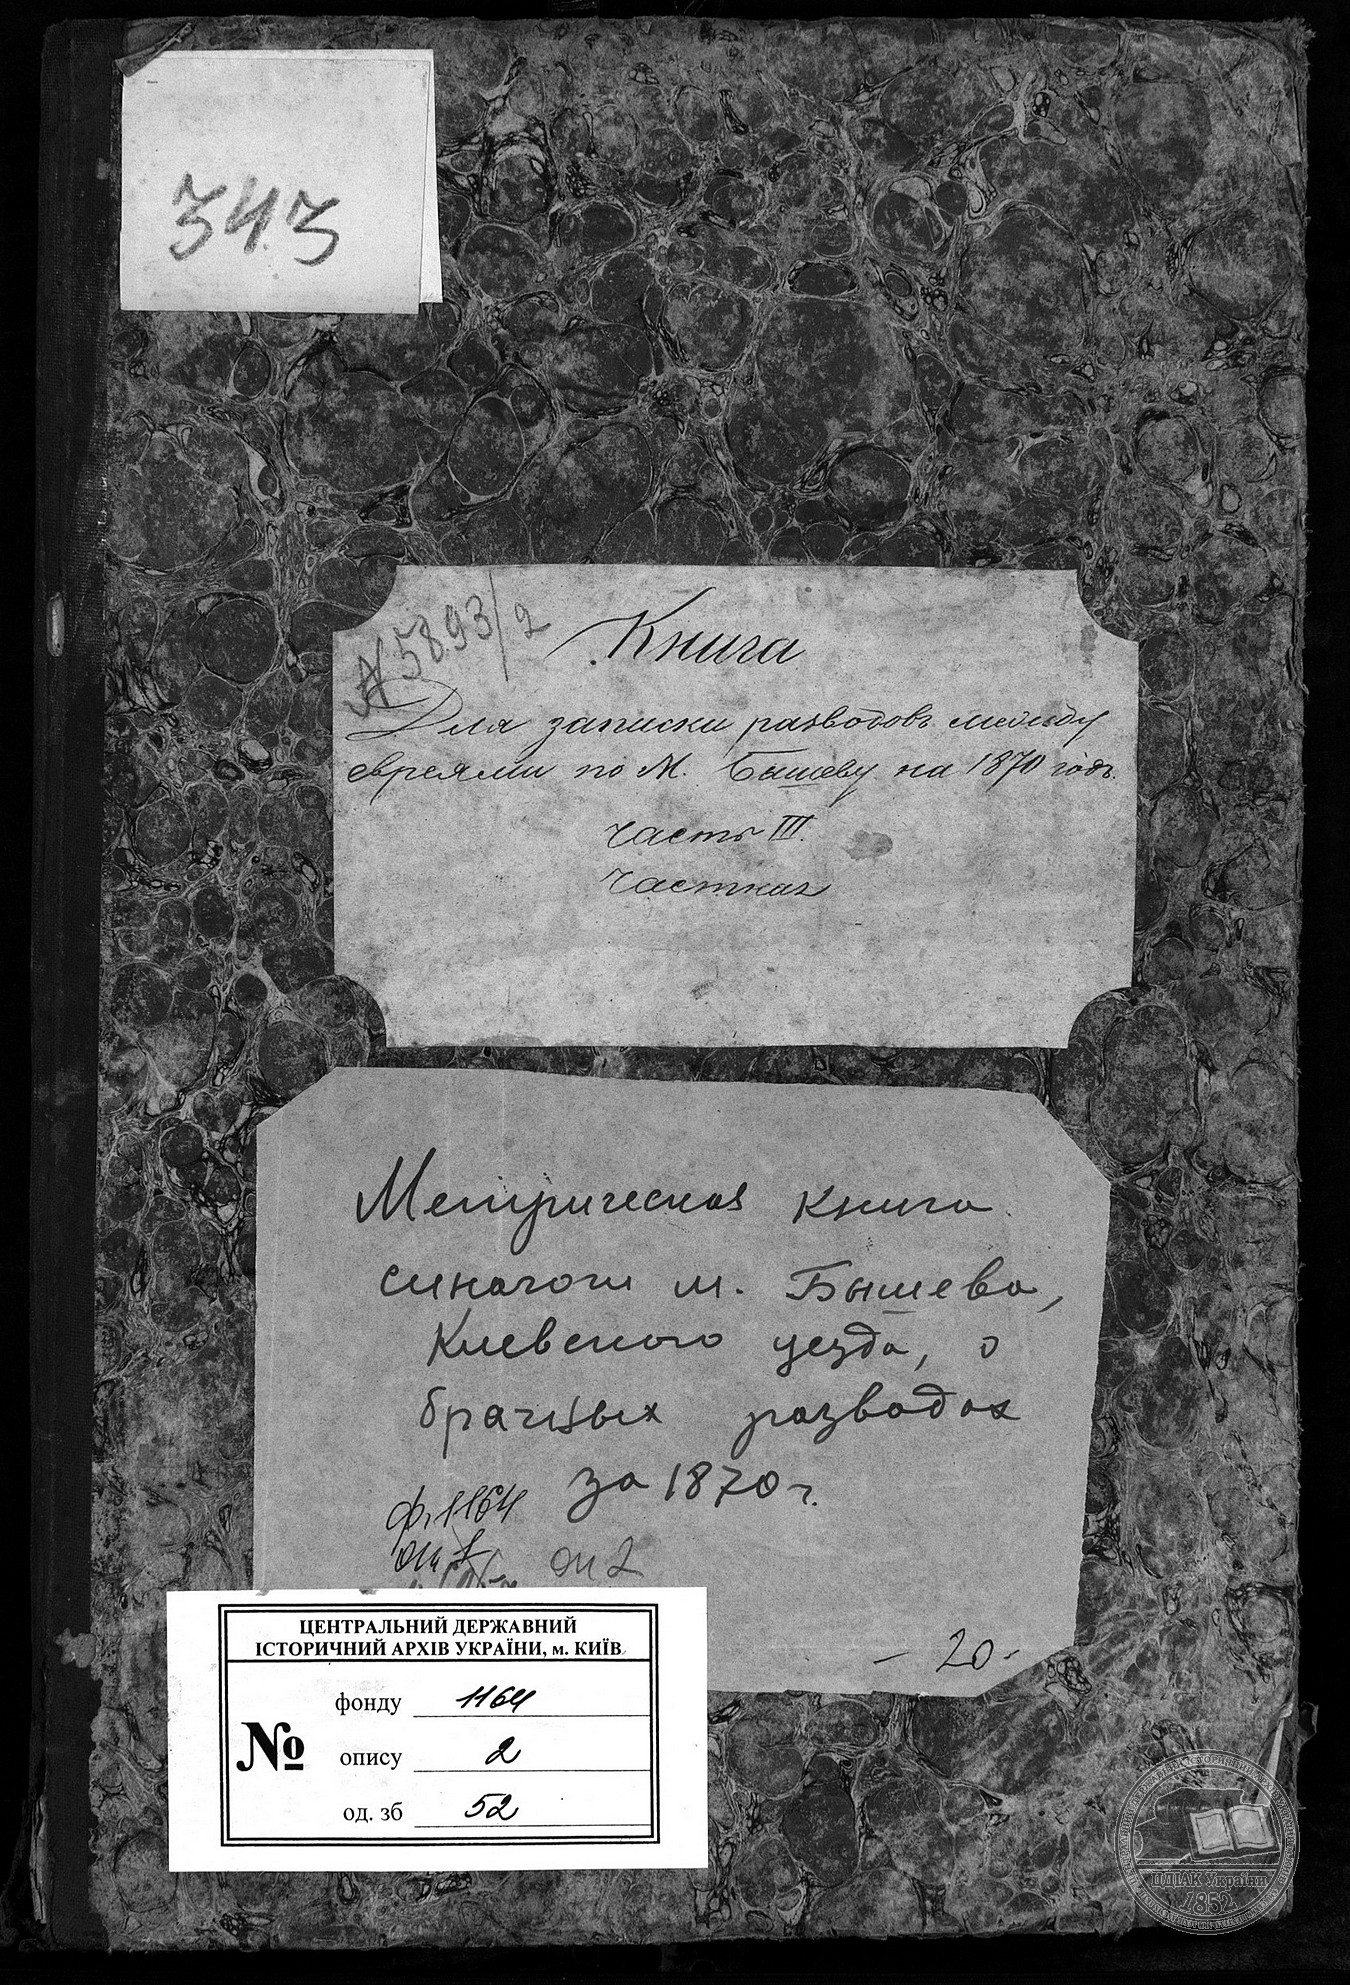 343
№ 5893/2
Книга
Для записки разводовъ между
евреями по М. Бышеву на 1870 годъ.
часть III.
Частная
Метрическая книга
синагоги м. Бышева,
Киевского уезда, о
брачных разводах
за 1870 г.
ф. 1164
оп 2
- 20 -
ЦЕНТРАЛЬНИЙ ДЕРЖАВНИЙ
ІСТОРИЧНИЙ АРХІВ УКРАЇНИ, м. КИЇВ
№
фонду 1164
опису 2
од. зб 52
ЦДІАК України
1852